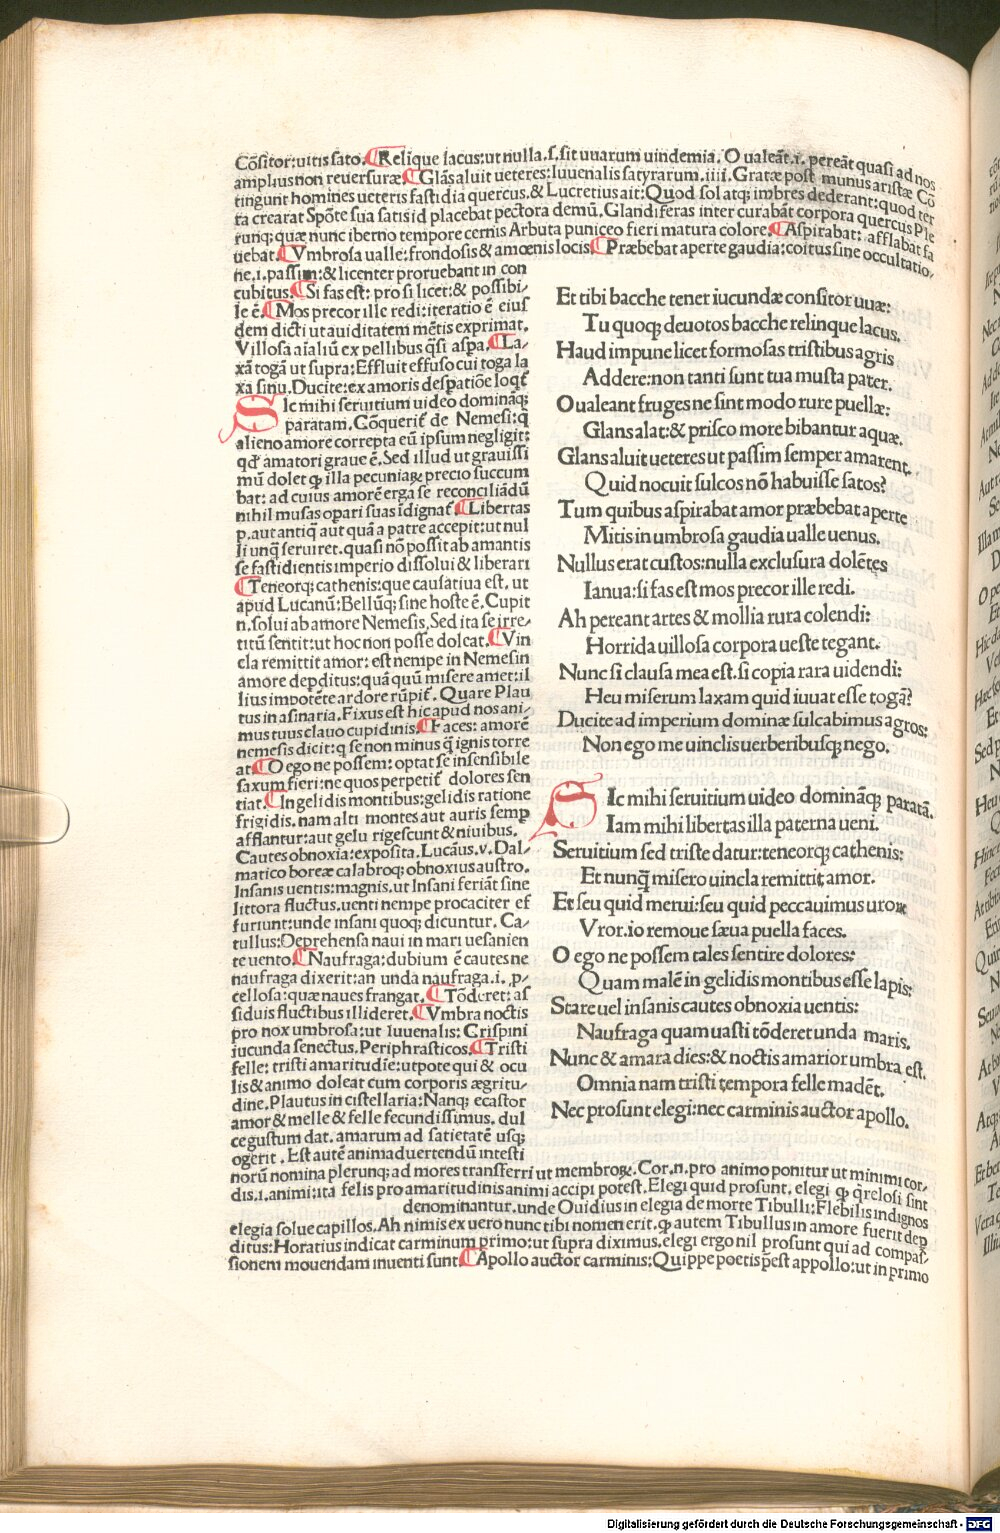 Cõsitor:uitis sato. ¶Relique lacus:ut nulla.s.sit uuarum uindemia. O ualeãt.i. pereãt quasi ad nos
amplius non reuersuræ. ¶Glãs aluit ueteres: Iuuenalis satyrarum.iiii. Gratæ post munus aristæ Cõ
tingunt homines ueteris fastidia quercus. & Lucretius ait: Quod sol atq; imbres dederant: quod ter
ra crearat Spõte sua satis id placebat pectora demũ. Glandiferas inter curabãt corpora quercus Ple
runq; quæ nunc iberno tempore cernis Arbuta puniceo fieri matura colore. ¶Aspirabat: afflabat fa
uebat. ¶Vmbrosa ualle: frondosis & amœnis locis. ¶Præbebat aperte gaudia: coitus sine occultatio-
ne.i. passim: & licenter proruebant in con
cubitus. ¶Si fas est: pro si licet: & possibi-
le ẽ. ¶Mos precor ille redi: iteratio ẽ eius
dem dicti ut auiditatem mẽtis exprimat.
Villosa aïaliũ ex pellibus q̃si aspa. ¶La-
xã togã ut supra: Effluit effuso cui toga la
xa sinu. Ducite: ex amoris despatiõe loqt̃
SIc mihi seruitium uideo dominãq;
paratam. Cõquerit̃ de Nemesi: q̃
alieno amore correpta eũ ipsum negligit:
qd̃ amatori graue ẽ. Sed illud ut grauissi
mũ dolet ꝙ illa pecuniaꝝ precio succum
bat: ad cuius amorẽ erga se reconciliãdũ
nihil musas opari suas ĩdignat̃. ¶Libertas
p. aut antiq̃ aut quã a patre accepit: ut nul
li unq̃ seruiret. quasi nõ possit ab amantis
se fastidientis imperio dissolui & liberari
¶Teneorq; cathenis: que causatiua est, ut
apud Lucanũ: Bellũq; sine hoste ẽ. Cupit
n. solui ab amore Nemesis, Sed ita se irre-
titũ sentit: ut hoc non posse doleat. ¶Vin
cla remittit amor: est nempe in Nemesin
amore depditus: quã quũ misere amet: il
lius impotẽte ardore rũpit̃. Quare Plau
tus in asinaria. Fixus est hic apud nos ani-
mus tuus clauo cupidinis. ¶Faces: amorẽ
nemesis dicit: q se non minus q̃ ignis torre
at. ¶O ego ne possem: optat se insensibile
saxum fieri: ne quos perpetit̃ dolores sen
tiat. ¶In gelidis montibus: gelidis ratione
frigidis. nam alti montes aut auris semp
afflantur: aut gelu rigescunt & niuibus.
Cautes obnoxia: exposita. Lucãus.v. Dal-
matico boreæ calabroq; obnoxius austro.
Insanis uentis: magnis. ut Insani feriãt sine
littora fluctus. uenti nempe procaciter ef
furiunt: unde insani quoq; dicuntur. Ca-
tullus: Deprehensa naui in mari uesanien
te uento. ¶Naufraga: dubium ẽ cautes ne
naufraga dixerit: an unda naufraga.i. p-
cellosa: quæ naues frangat. ¶Tõderet: as
siduis fluctibus illideret. ¶Vmbra noctis
pro nox umbrosa: ut Iuuenalis: Crispini
iucunda senectus. Periphrasticos. ¶Tristi
felle: tristi amaritudie: utpote qui & ocu
lis & animo doleat cum corporis ægritu-
dine. Plautus in cistellaria: Nanq; ecastor
amor & melle & felle fecundissimus. dul
ce gustum dat. amarum ad satietatẽ usq;
ogerit. Est autẽ animaduertendũ intesti
norũ nomina plerunq; ad mores transferri ut membroꝝ. Cor.n. pro animo ponitur ut minimi cor-
dis.i. animi: ita felis pro amaritudinis animi accipi potest. Elegi quid prosunt. elegi ꝙ q̃relosi sint
denominantur. unde Ouidius in elegia de morte Tibulli: Flebilis indignos
elegia solue capillos. Ah nimis ex uero nunc tibi nomen erit. ꝙ autem Tibullus in amore fuerit dep
ditus: Horatius indicat carminum primo: ut supra diximus. elegi ergo nil prosunt qui ad compas-
sionem mouendam inuenti sunt. ¶Apollo auctor carminis: Quippe poetis pest appollo: ut in primo
Et tibi bacche tener iucundæ consitor uuæ:
Tu quoq; deuotos bacche relinque lacus.
Haud impune licet formosas tristibus agris
Addere: non tanti sunt tua musta pater.
O ualeant fruges ne sint modo rure puellæ:
Glans alat: & prisco more bibantur aquæ.
Glans aluit ueteres ut passim semper amarent.
Quid nocuit sulcos nõ habuisse satos?
Tum quibus aspirabat amor præbebat aperte
Mitis in umbrosa gaudia ualle uenus.
Nullus erat custos: nulla exclusura dolẽtes
Ianua: si fas est mos precor ille redi.
Ah pereant artes & mollia rura colendi:
Horrida uillosa corpora ueste tegant.
Nunc si clausa mea est. si copia rara uidendi:
Heu miserum laxam quid iuuat esse togã?
Ducite ad imperium dominæ sulcabimus agros:
Non ego me uinclis uerberibusq; nego.
SIc mihi seruitium uideo dominãq; paratã.
Iam mihi libertas illa paterna ueni.
Seruitium sed triste datur: teneorq; cathenis:
Et nunq̃ misero uincla remittit amor.
Et seu quid merui: seu quid peccauimus uror
Vror. io remoue sæua puella faces.
O ego ne possem tales sentire dolores:
Quam malẽ in gelidis montibus esse lapis:
Stare uel insanis cautes obnoxia uentis:
Naufraga quam uasti tõderet unda maris.
Nunc & amara dies: & noctis amarior umbra est.
Omnia nam tristi tempora felle madẽt.
Nec prosunt elegi: nec carminis auctor apollo.
Digitalisierung gefördert durch die Deutsche Forschungsgemeinschaft - DFG